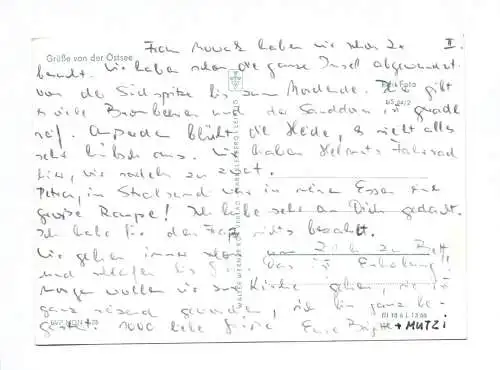 Grüße von der Ostsee
Frau Nowak haben wir schon 2x II.
besucht. Wir haben schon die ganze Insel abgewandert.
von der Südspitze bis zum Nordende. Hier gibt
es viele Brombeeren und der Sanddorn ist gerade
reif. Außerdem blüht die Heide, es sieht alles
sehr hübsch aus. Wir haben Helmuts Fahrrad
hier, wir radeln zu zweit.
Petra, in Stralsund war in meinem Essen eine
große Raupe! Ich habe sehr an Dich gedacht.
Ich habe für den nichts bezahlt.
Wir gehen immer schon um 20 h zu Bett
und schlafen bis Das ist Erholung!
Morgen wollen wir zur Kirche gehen, sie ist
ganz reizend geworden, ich bin ganz be-
geistert. 1000 liebe Grüße Eure Brigitte + MUTZI
Foto
WALTER WERNER VERLAG LEIPZIG
III 18 6 L 13 66